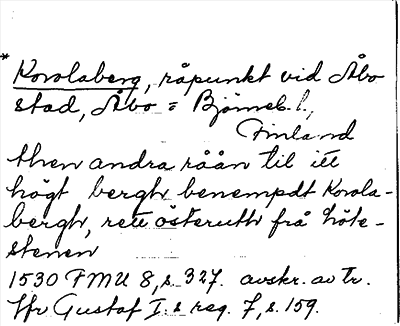 * Korolaberg, råpunkt vid Åbo
stad, Åbo = Björneb. l.,
Finland
then andra råån til itt
högt bergh benempdt Korola-
bergh, rett österuth frå höte-
stenen
1530 FMU 8, s. 327. avskr. av tr.
Jfr Gustaf I:s reg. 7, s. 159.